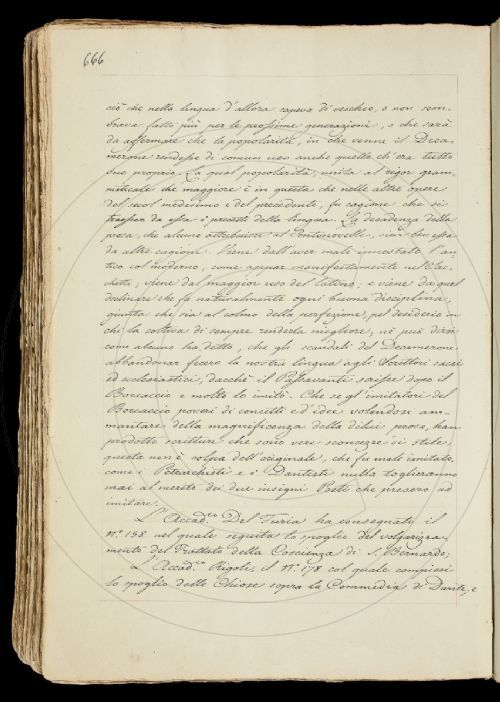 666
ciò che nella lingua d'allora sapeva di vecchio, o non sem-
brava fatto più per le prossime generazioni, o che sarà
da affermare che la popolarità, in che venne il Deca-
merone rendesse di comun uso anche quella ch'era tutta
sua propria. La qual popolarità, unita al rigor gram-
maticale che maggiore è in questa che nelle altre opere
del secol medesimo e del precedente, fu cagione che si
traesser da essa i precetti della lingua. La decadenza della
prosa, che alcuni attribuisce al Centonovelle, vien ben essa
da altre cagioni. Viene dall'aver male innestato l'an-
tico col moderno, come appar manifestamente nel Sac-
chetti, viene dal maggior uso del latino; e viene da quel
declinare che fa naturalmente ogni buona disciplina,
giunta che sia al colmo della perfezione, pel desiderio in
chi la coltiva di sempre renderla migliore, nè può dirsi
come alcuno ha detto, che gli scandali del Decamerone
abbandonar fecero la nostra lingua agli Scrittori sacri
ed ecclesiastici, dacchè il Passavanti scrisse dopo il
Boccaccio e molto lo imitò. Che se gl'imitatori del
Boccaccio poveri di concetti ed idee volendosi am-
mantare della magnificenza della di lui prosa, han
prodotto scritture che sono vere sconcezze di stile,
questa non è colpa dell'originale, che fu male imitato,
come i Petrarchisti e i Dantisti nulla toglieranno
mai al merito dei due insigni Poeti che presero ad
imitare.
L'Accad.co Del Furia ha consegnato il
N.o 158 nel quale seguita lo spoglio del volgarizza-
mento del Trattato della Coscienza di S. Bernardo;
L'Accad.co Rigoli, il N.o 178 col quale compiesi
lo spoglio delle Chiose sopra la Commedia di Dante, e